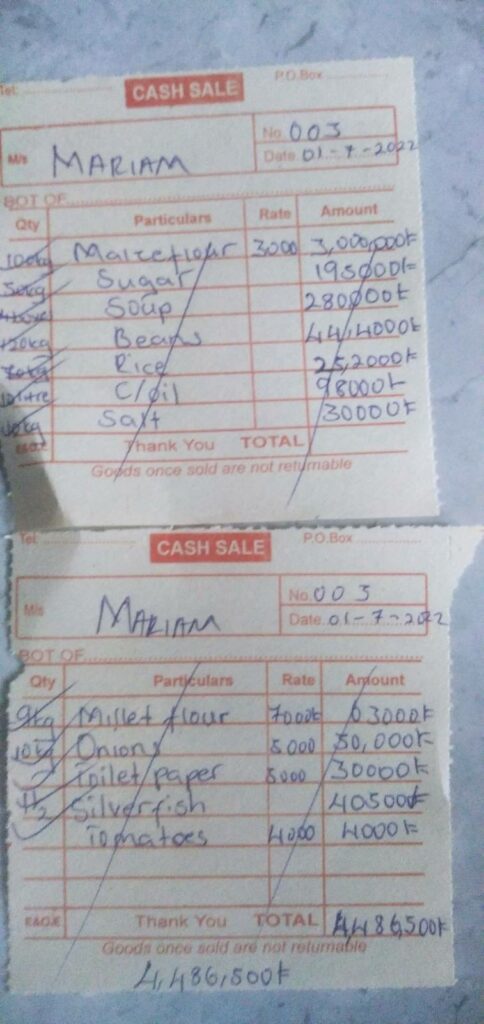 Tel: P.O.Box
CASH SALE
M/s MARIAM No. 003
Date. 01-7-2022
BOT OF
Qty Particulars Rate Amount
Maizeflour 3000 3,000,000/=
50kg Sugar 195000/=
Soup 280000/=
120kg Beans 44,4000/=
70kg Rice 25,2000/=
10 litre C/oil 98000/=
10kg Salt 30000/=
E&O.E Thank You TOTAL
Goods once sold are not returnable
Tel: P.O.Box
CASH SALE
M/s MARIAM No. 003
Date. 01-7-2022
BOT OF
Qty Particulars Rate Amount
9kg Millet flour 7000/= 63000/=
10kg Onions 5000 50,000/=
Toilet paper 5000 30000/=
1½ Silverfish 40500/=
Tomatoes 4000 4000/=
E&O.E Thank You TOTAL 4,486,500/=
Goods once sold are not returnable
4,486,500/=